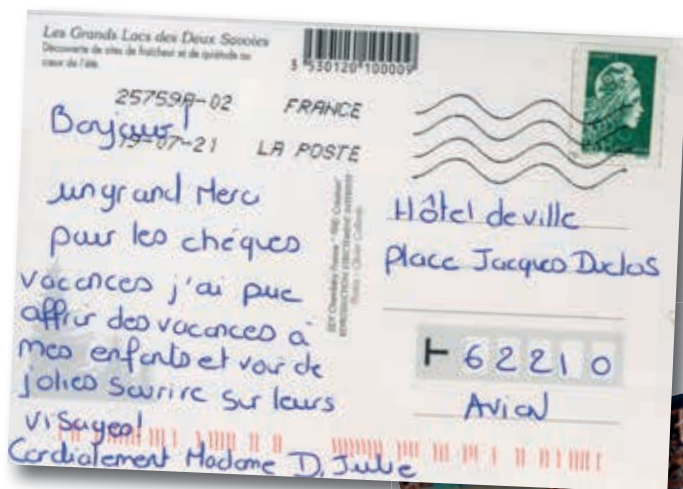 Les Grands Lacs des Deux Savoies
Découverte de sites de fraîcheur et de quiétude au
cœur de l'été.
3 530120 100009
25759A-02 FRANCE
19-07-21 LA POSTE
Bonjour!
un grand Merci
pour les chéques
vacances j'ai pue
offrir des vacances à
mes enfants et voir de
jolies sourire sur leurs
visages!
Cordialement Madame D. Julie
Hôtel de ville
Place Jacques Duclos
62210
Avion